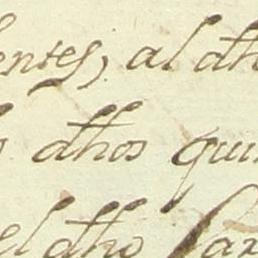 entes; al dh
dhos qui
el dho